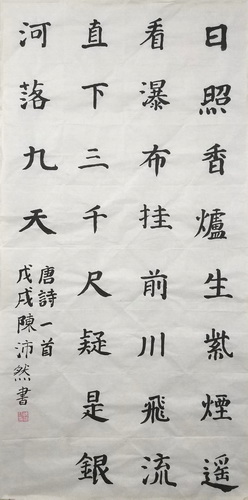 日照香爐生紫煙遥
看瀑布挂前川飛流
直下三千尺疑是銀
河落九天
唐詩一首
戊戌陳沛然書